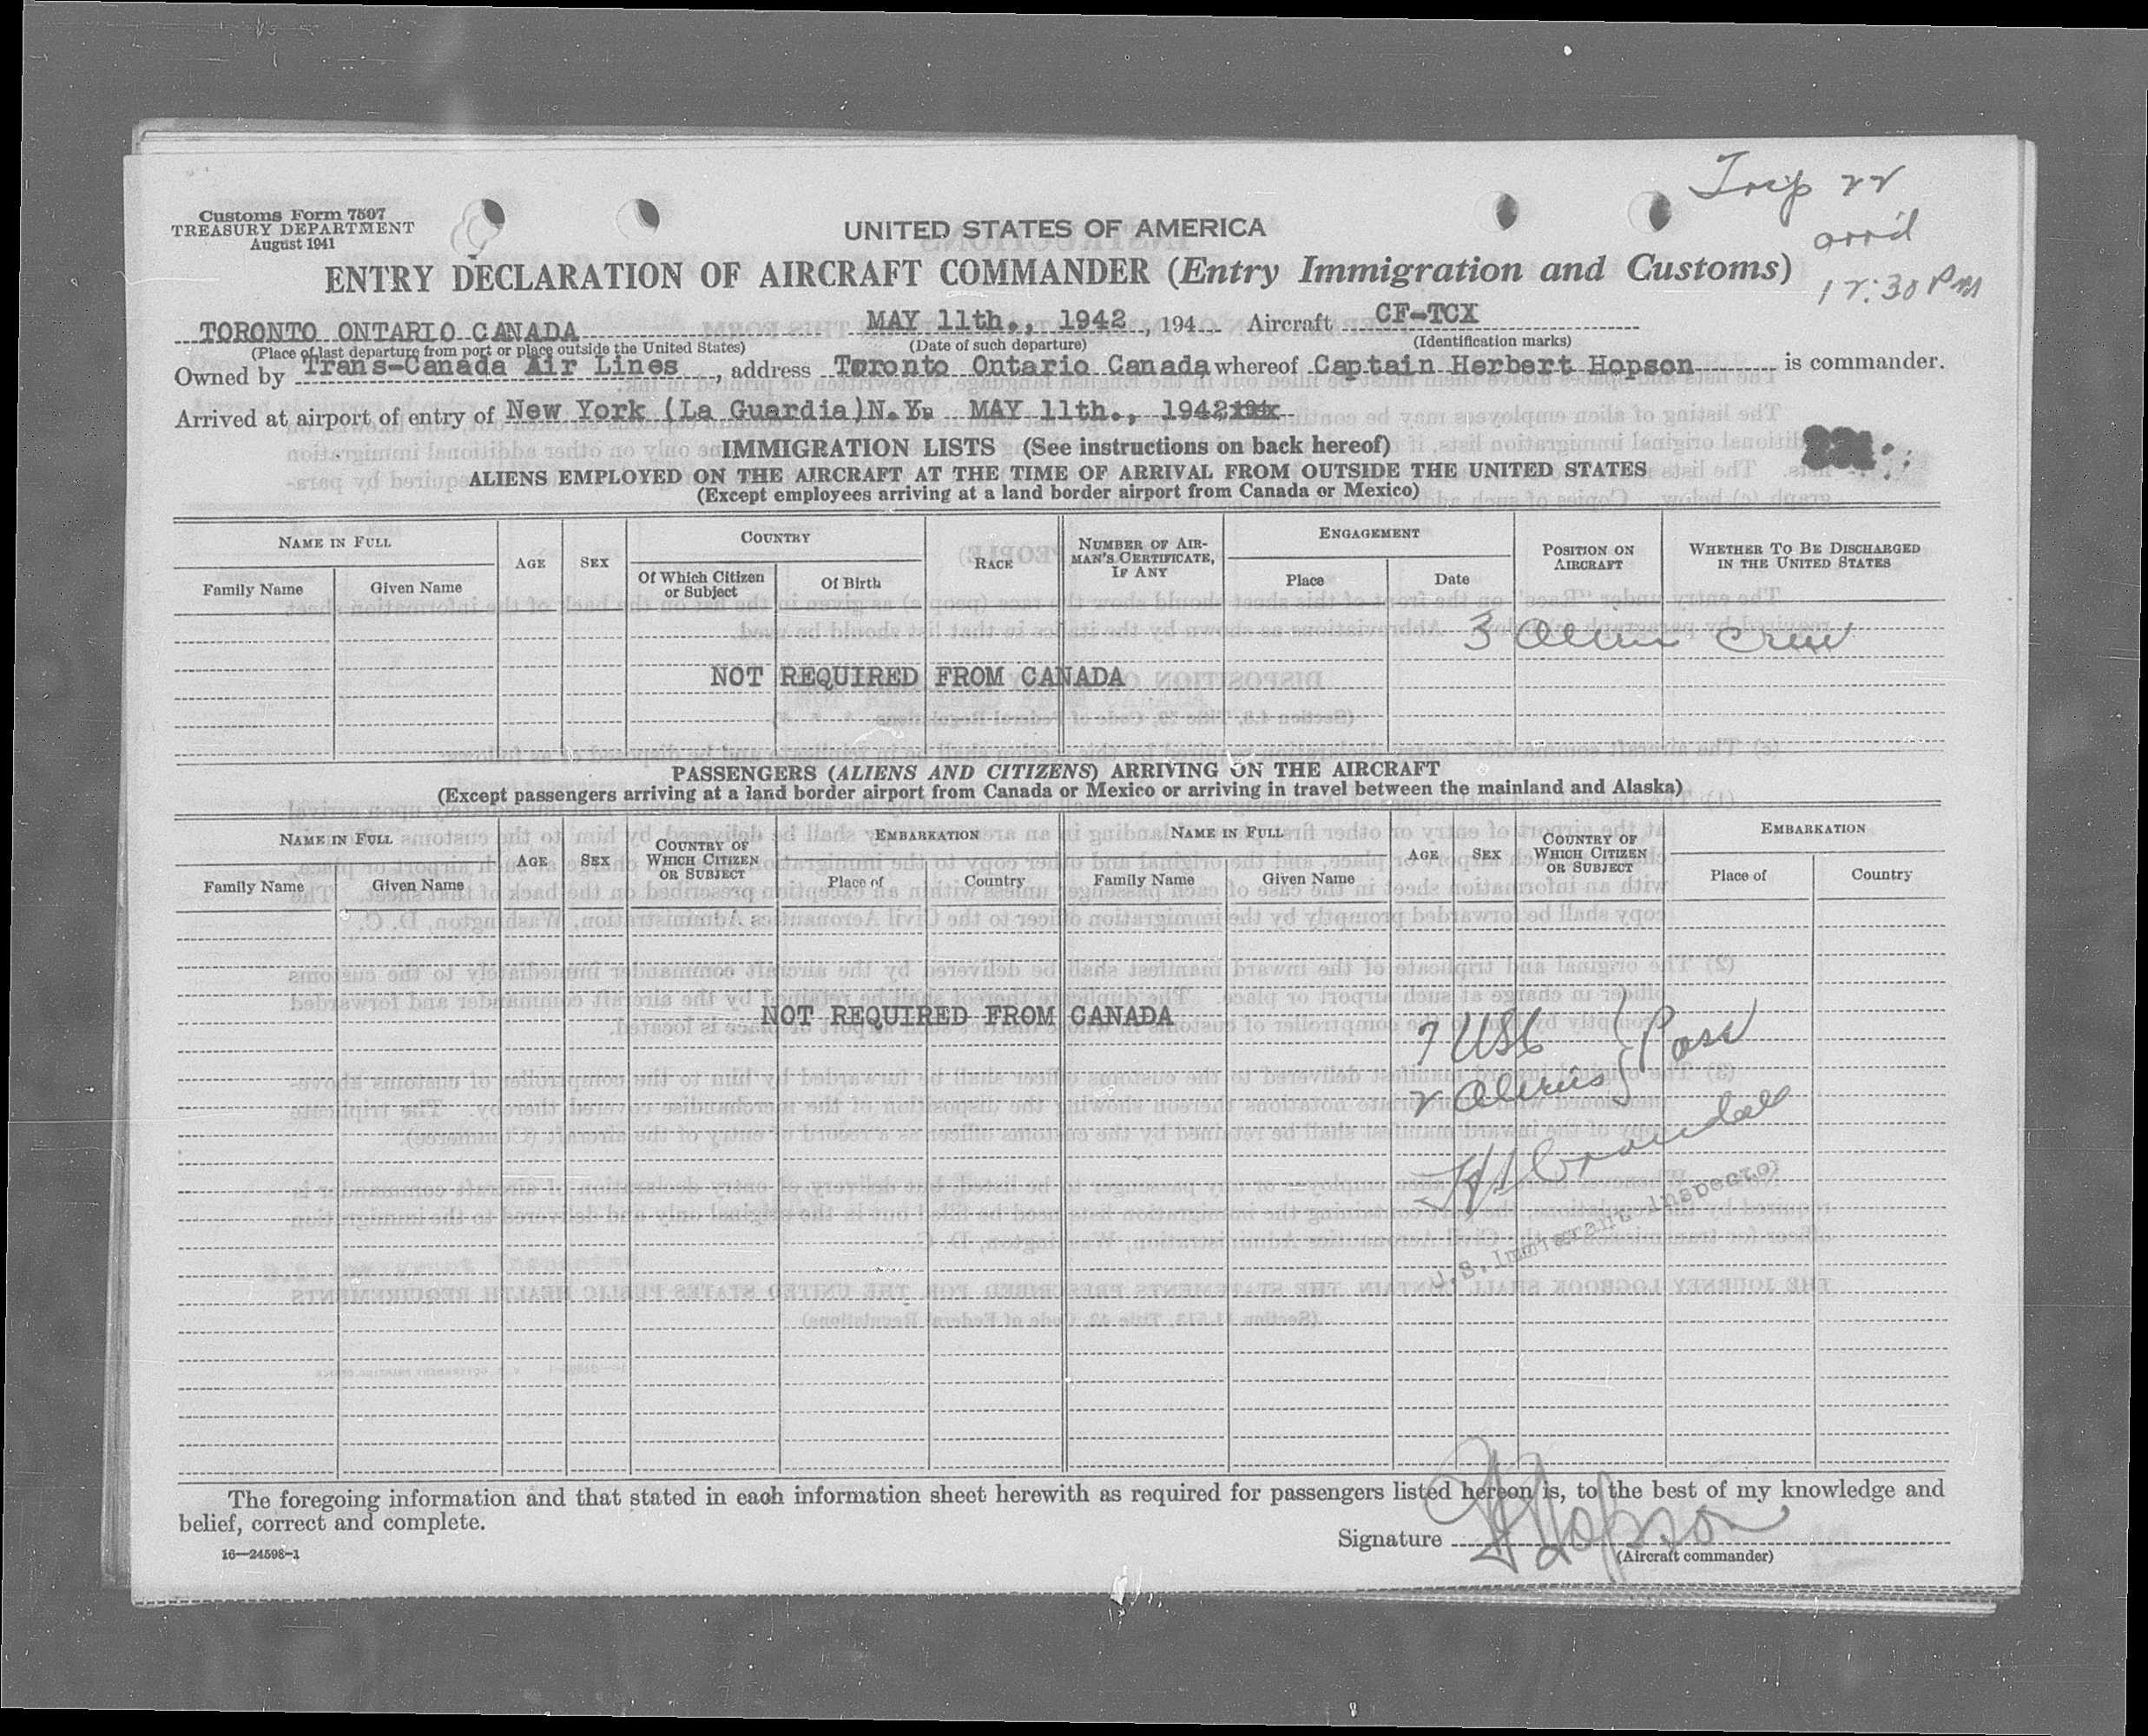 Trip 22
arr'd
12:30 PM
Customs Form 7507
TREASURY DEPARTMENT
August 1941
UNITED STATES OF AMERICA
ENTRY DECLARATION OF AIRCRAFT COMMANDER (Entry Immigration and Customs)
TORONTO ONTARIO CANADA MAY 11th., 1942, 194 Aircraft CF-TCX
(Place of last departure from port or place outside the United States) (Date of such departure) (Identification marks)
Owned by Trans-Canada Air Lines, address Toronto Ontario Canada whereof Captain Herbert Hopson is commander.
Arrived at airport of entry of New York (La Guardia)N.Y. MAY 11th., 1942
IMMIGRATION LISTS (See instructions on back hereof)
ALIENS EMPLOYED ON THE AIRCRAFT AT THE TIME OF ARRIVAL FROM OUTSIDE THE UNITED STATES
(Except employees arriving at a land border airport from Canada or Mexico)
NAME IN FULL AGE SEX COUNTRY RACE NUMBER OF AIRMAN'S CERTIFICATE, IF ANY ENGAGEMENT POSITION ON AIRCRAFT WHETHER TO BE DISCHARGED IN THE UNITED STATES
Family Name Given Name Of Which Citizen or Subject Of Birth Place Date
3 Alien crew
NOT REQUIRED FROM CANADA
PASSENGERS (ALIENS AND CITIZENS) ARRIVING ON THE AIRCRAFT
(Except passengers arriving at a land border airport from Canada or Mexico or arriving in travel between the mainland and Alaska)
NAME IN FULL AGE SEX COUNTRY OF WHICH CITIZEN OR SUBJECT EMBARKATION NAME IN FULL AGE SEX COUNTRY OF WHICH CITIZEN OR SUBJECT EMBARKATION
Family Name Given Name Place of Country Family Name Given Name Place of Country
NOT REQUIRED FROM CANADA
7 USC
2 Aliens } Pass
Crandall
U.S. Immigrant Inspector
The foregoing information and that stated in each information sheet herewith as required for passengers listed hereon is, to the best of my knowledge and
belief, correct and complete.
Signature H Hopson
16—24598-1 (Aircraft commander)